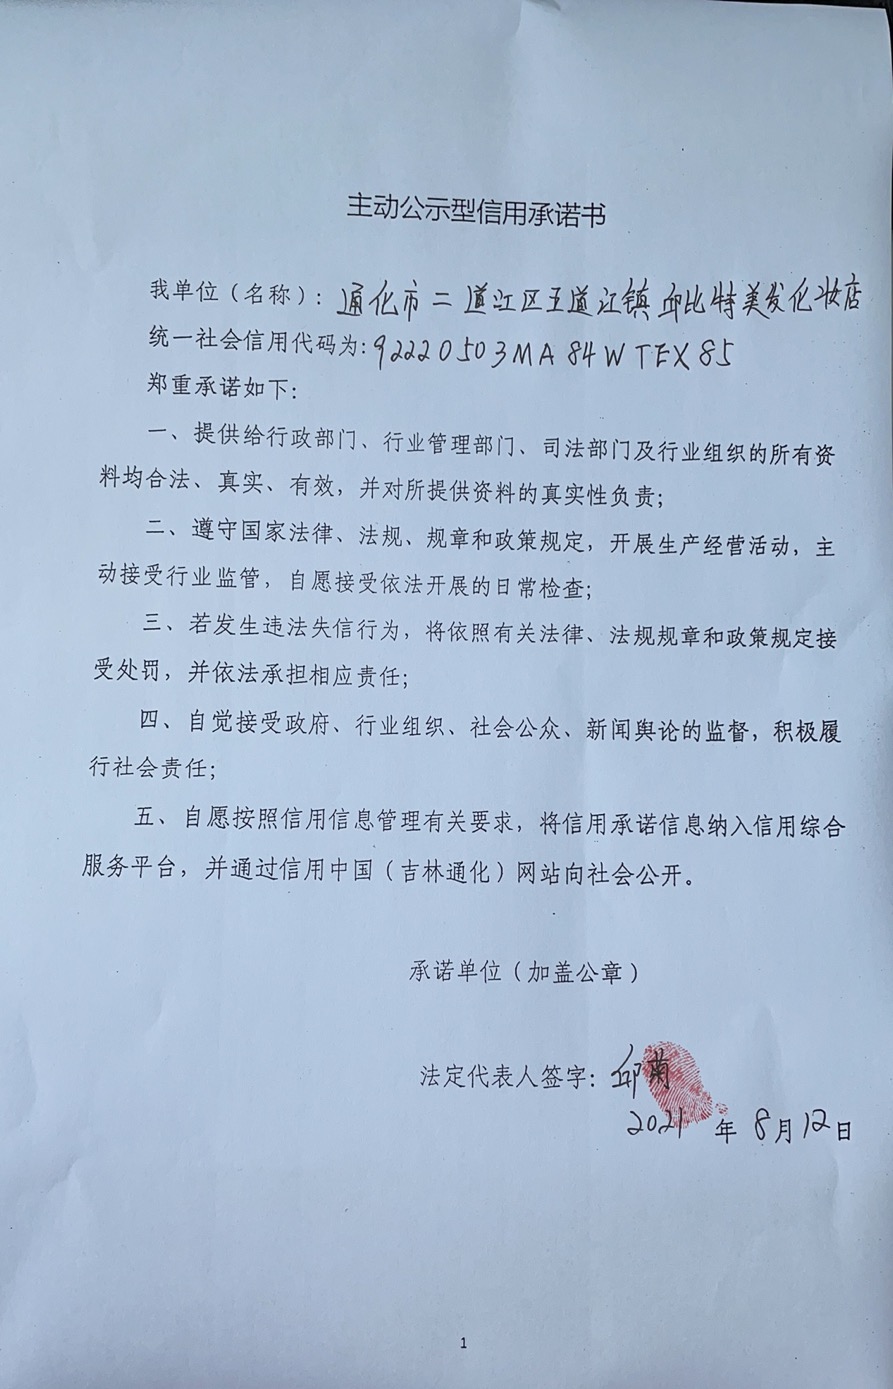 主动公示型信用承诺书
我单位（名称）：通化市二道江区五道江镇邱比特美发化妆店
统一社会信用代码为：92220503MA84WTEX85
郑重承诺如下：
一、提供给行政部门、行业管理部门、司法部门及行业组织的所有资
料均合法、真实、有效，并对所提供资料的真实性负责；
二、遵守国家法律、法规、规章和政策规定，开展生产经营活动，主
动接受行业监管，自愿接受依法开展的日常检查；
三、若发生违法失信行为，将依照有关法律、法规规章和政策规定接
受处罚，并依法承担相应责任；
四、自觉接受政府、行业组织、社会公众、新闻舆论的监督，积极履
行社会责任；
五、自愿按照信用信息管理有关要求，将信用承诺信息纳入信用综合
服务平台，并通过信用中国（吉林通化）网站向社会公开。
承诺单位（加盖公章）
法定代表人签字：邱菊
2021年8月12日
1